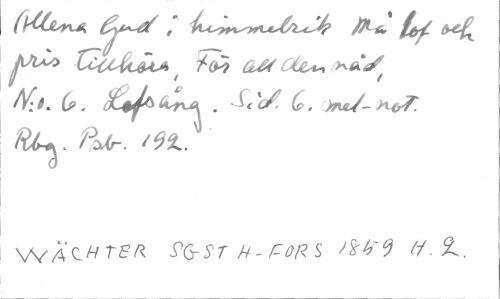 Allena Gud i himmelrik Må lof och
pris tillhöra, För all den nåd,
N:o. 6. Lofsång. Sid. 6. mel-not.
Rbg. Psb. 192.
WÄCHTER SGST H-FORS 1859 H. 2.